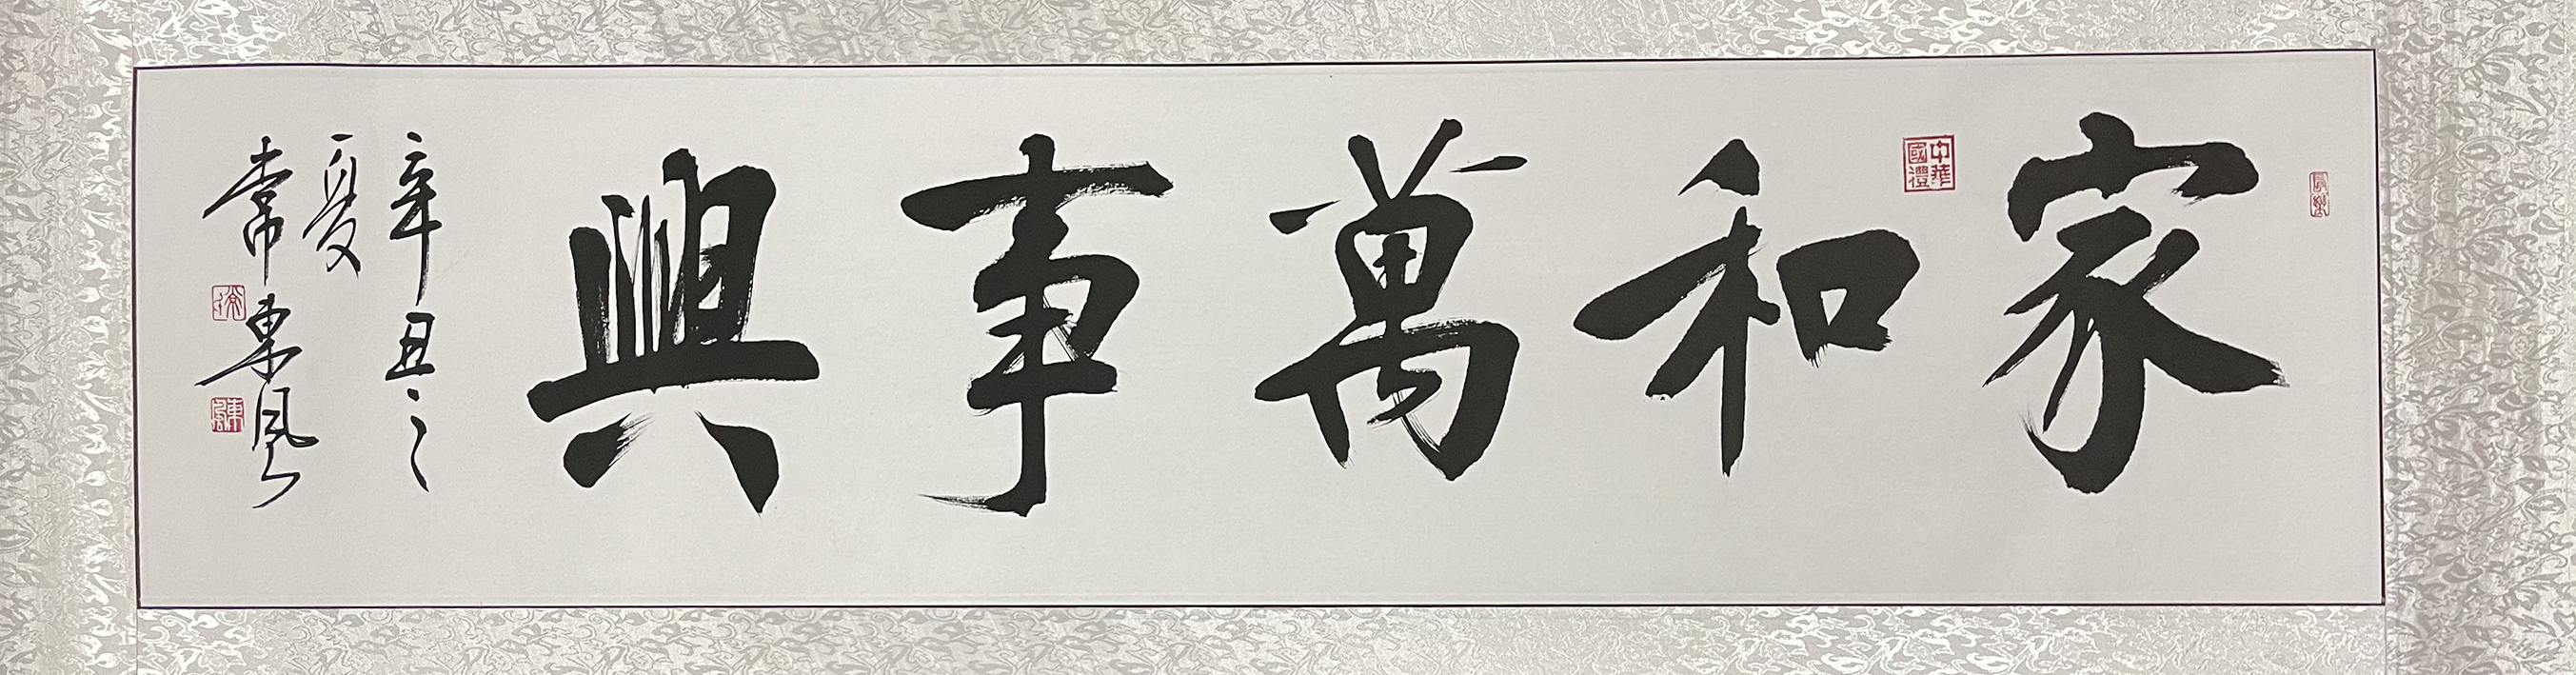 家和萬事興
辛丑之
夏
常東風
長樂
中華國禮
東風